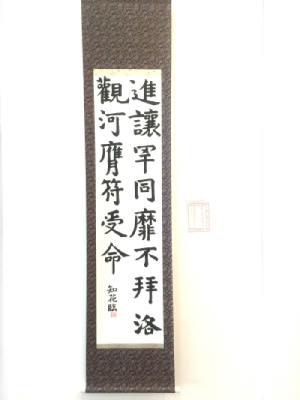 進讓罕同靡不拜洛
觀河膺符受命
知花臨